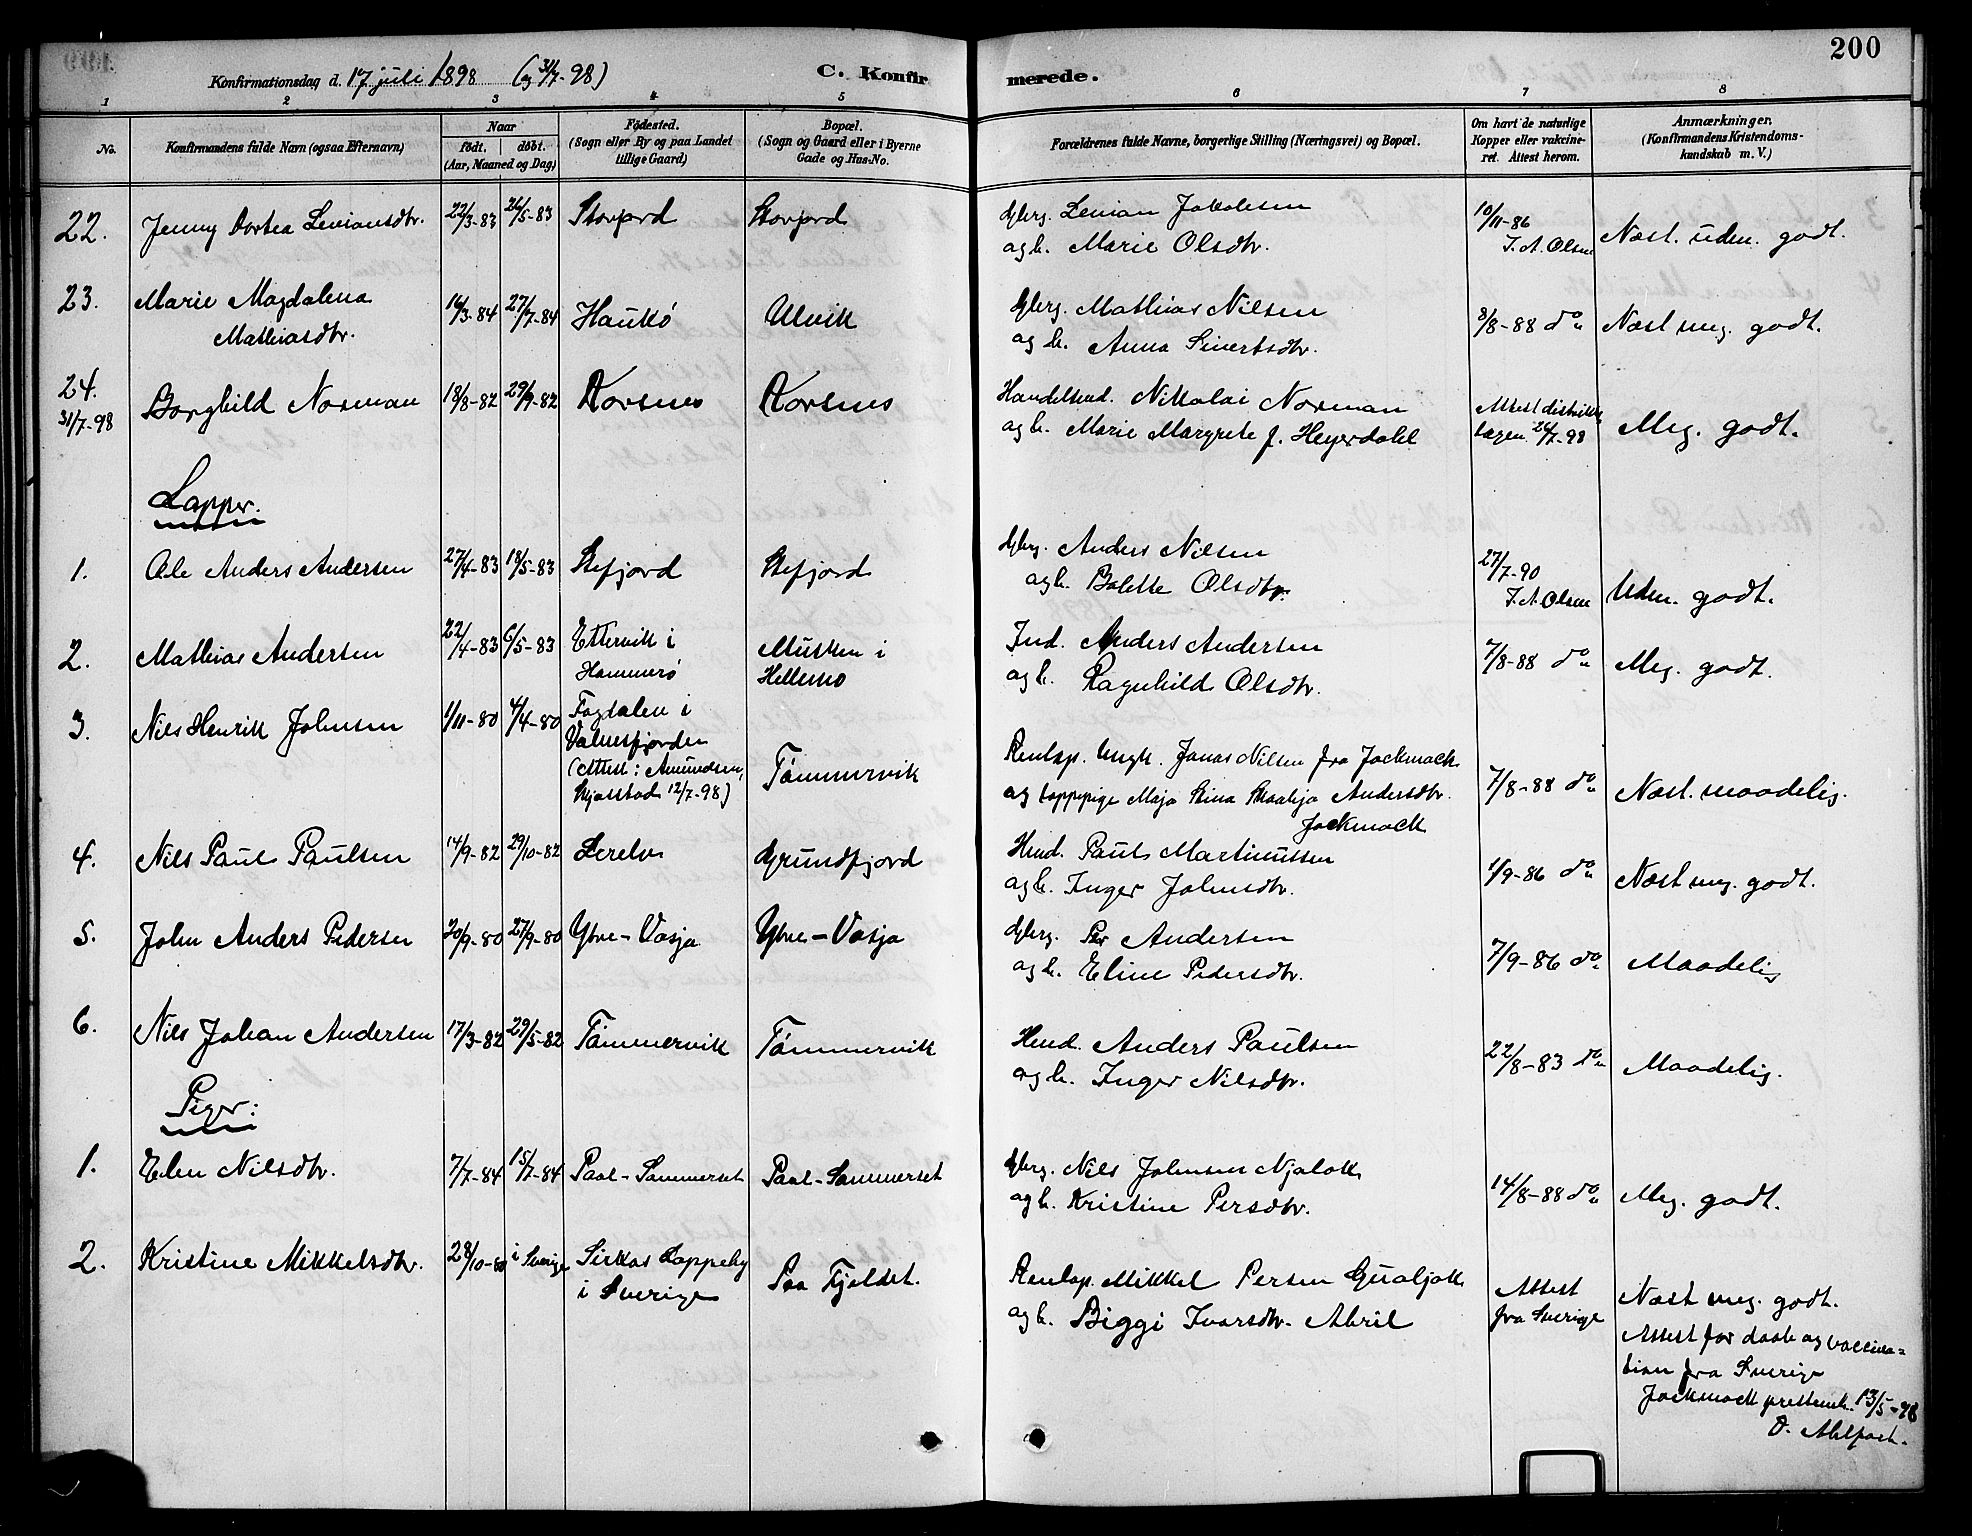 200
Konfirmationsdag d. 17 juli 1898 (og 31/7-98)
C. Konfirmerede.
1 2 3 4 5 6 7 8
No.
Konfirmandens fulde Navn (ogsaa Efternavn)
Naar
født. døbt.
(Aar, Maaned og Dag)
Fødested.
(Sogn eller By og paa Landet
tillige Gaard)
Bopæl.
(Sogn og Gaard eller i Byerne
Gade og Hus-No.
Forældrenes fulde Navne, borgerlige Stilling (Næringsvei) og Bopæl.
Om havt de naturlige
Kopper eller vakcine-
ret. Attest herom.
Anmærkninger.
(Konfirmandens Kristendoms-
kundskab m. V.)
22. Jenny Dortea Leviansdtr. 22/3-83 26/5-83 Storjord Storjord Gbrg. Levian Jakobsen
og h. Marie Olsdtr. 10/11-86
J. A. Olsen Næst. uden. godt.
23. Marie Magdalena
Mathiasdtr. 16/3-84 27/7-84 Haukø Ulvik Gbrg. Mathias Nilsen
og h. Anna Sivertsdtr. 8/8-88 do Næst meg. godt.
24.
31/7-98 Borghild Norman 18/8-82 29/9-82 Korsnes Korsnes Handelsmd. Nikolai Norman
og h. Marie Margrete f. Heyerdahl Attest distrikts
lægen 26/7-98 Meg. godt.
Lapper.
1. Ole Anders Andersen 27/4-83 18/5-83 Stefjord Stefjord Gbrg. Anders Nilsen
og h. Bolette Olsdtr. 27/7-90
J. A. Olsen Uden. godt.
2. Mathias Andersen 22/4-83 6/5-83 Ettervik i
Hammerø Musken i
Hellemo Ind. Anders Andersen
og h. Ragnhild Olsdtr. 7/8-88 do Meg. godt.
3. Nils Henrik Johnsen 1/11-80 4/4-80 Fagdalen i
Valnesfjorden
(Attest: Amundsen,
Skjærstad 12/7-98) Tømmervik Renlap. Ungk. Jonas Nilsen fra Jockmock
og lappepige Maja Stina Andersdtr.
Jockmock 7/8-88 do Næst. maadelig.
4. Nils Paul Paulsen 14/9-82 29/10-82 Lerelv Grundfjord Hmd. Paul Martinussen
og h. Inger Johnsdtr. 1/9-86 do Næst meg. godt.
5. John Anders Pedersen 20/9-80 27/9-80 Ytre-Vasja Ytre-Vasja Gbrg. Per Andersen
og h. Eline Pedersdtr. 7/9-86 do Maadelig
6. Nils Johan Andersen 17/3-82 29/5-82 Tømmervik Tømmervik Hmd. Anders Paulsen
og h. Inger Nilsdtr. 22/8-83 do Maadelig.
Piger:
1. Elen Nilsdtr. 7/7-84 15/7-84 Paal-Sommerset Paal-Sommerset Gbrg. Nils Johnsen Njalok
og h. Kristine Persdtr. 14/8-88 do Meg. godt.
2. Kristine Mikkelsdtr. 28/10-80 i Sverige Sirkas Lappeby
i Sverige Paa Fjeldet. Renlap. Mikkel Persen Gualjok
og h. Biggi Ivarsdtr. Abril Attest
fra Sverige Næst meg. godt.
Attest for daab og vaccina-
tion fra Sverige
Jockmock prestemk. 13/5-98